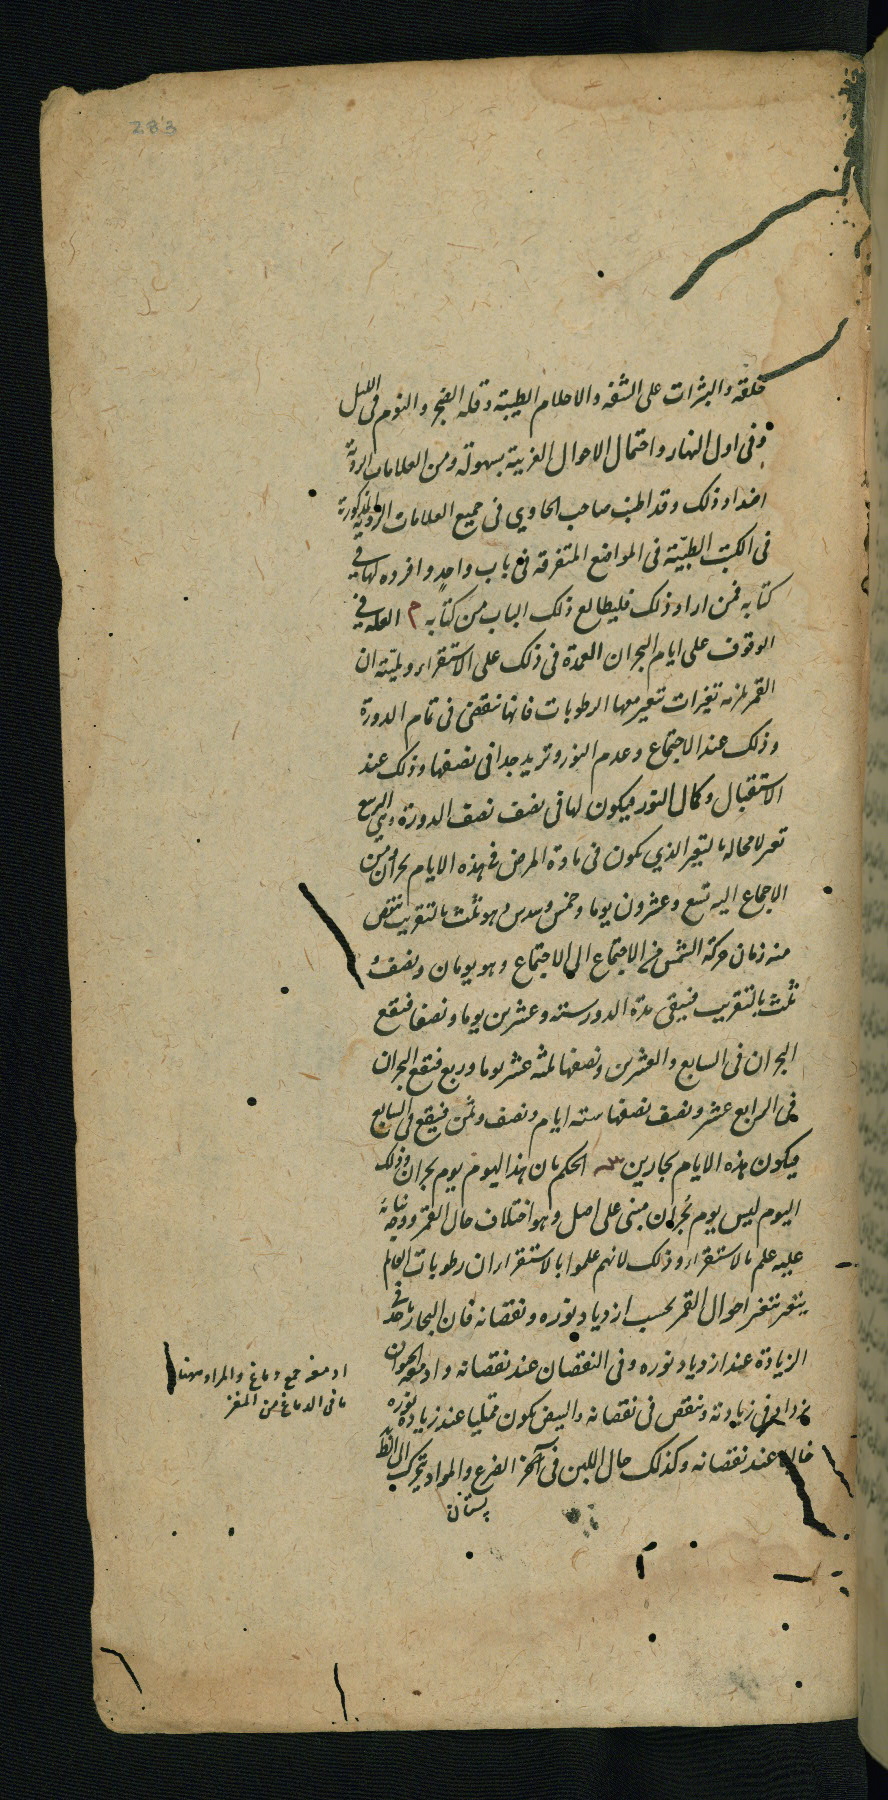 283
خلقه والبثرات على الشفه والاحلام الطيبة وقله الضجر والنوم فى الليل
وفى اول النهار واحتمال الاحوال الغريبة بسهولة ومن العلامات الردية
اضداد ذلك وقد اطنب صاحب الحاوي فى جميع العلامات الردية المذكورة
فى الكتب الطبيّة فى المواضع المتفرقة فى باب واحدٍ وافرده لها فى
كتابه فمن اراد ذلك فليطالع ذلك الباب من كتابه م العله فى
الوقوف على ايام البحران العمدة فى ذلك على الاستقراء ولميّته ان
القمر يلزمه تغيرات تتغير معها الرطوبات فانها تنقص فى تمام الدورة
وذلك عند الاجتماع وعدم النور وتزيد جدا فى نصفها وذلك عند
الاستقبال وكمال النور فيكون لها فى نصف نصف الدورة وهى الربع
تغير لا محاله بالتغير الذي يكون فى مادة المرض فى هذه الايام بحران ومن
الاجماع اليه تسع وعشرون يوما وخمس وسدس وهو ثلث بالتقريب تنقص
منه زمان حركة الشمس فى الاجتماع الى الاجتماع وهو يومان ونصف و
ثلث بالتقريب فيبقى مدة الدور سته وعشرين يوما ونصفا فتقع
البحران فى السابع والعشرين ونصفها ثلثه عشر يوما وربع فتقع البحران
فى الرابع عشر ونصف نصفها سته ايام ونصف وثمن فيقع فى السابع
فيكون هذه الايام بحارين الحكم بان هذا اليوم يوم بحران وذلك
اليوم ليس يوم بحران مبنى على اصل وهو اختلاف حال القمر ووجه بنائه
عليه علم بالاستقراء وذلك لانهم علموا بالاستقراء ان رطوبات العالم
يتغير بتغير احوال القمر بحسب ازدياد نوره ونقصانه فان البحار ياخذ فى
الزيادة عند ازدياد نوره وفى النقصان عند نقصانه وادمغه الحيوان
يزداد فى زيادته وتنقص فى نقصانه والبيض يكون ممتليا عند زيادة نوره
خاليا عند نقصانه وكذلك حال اللبن فى الضرع والمواد تتحرك الى
پستان
ادمغه جمع دماغ والمراد ههنا
ما فى الدماغ من المغز